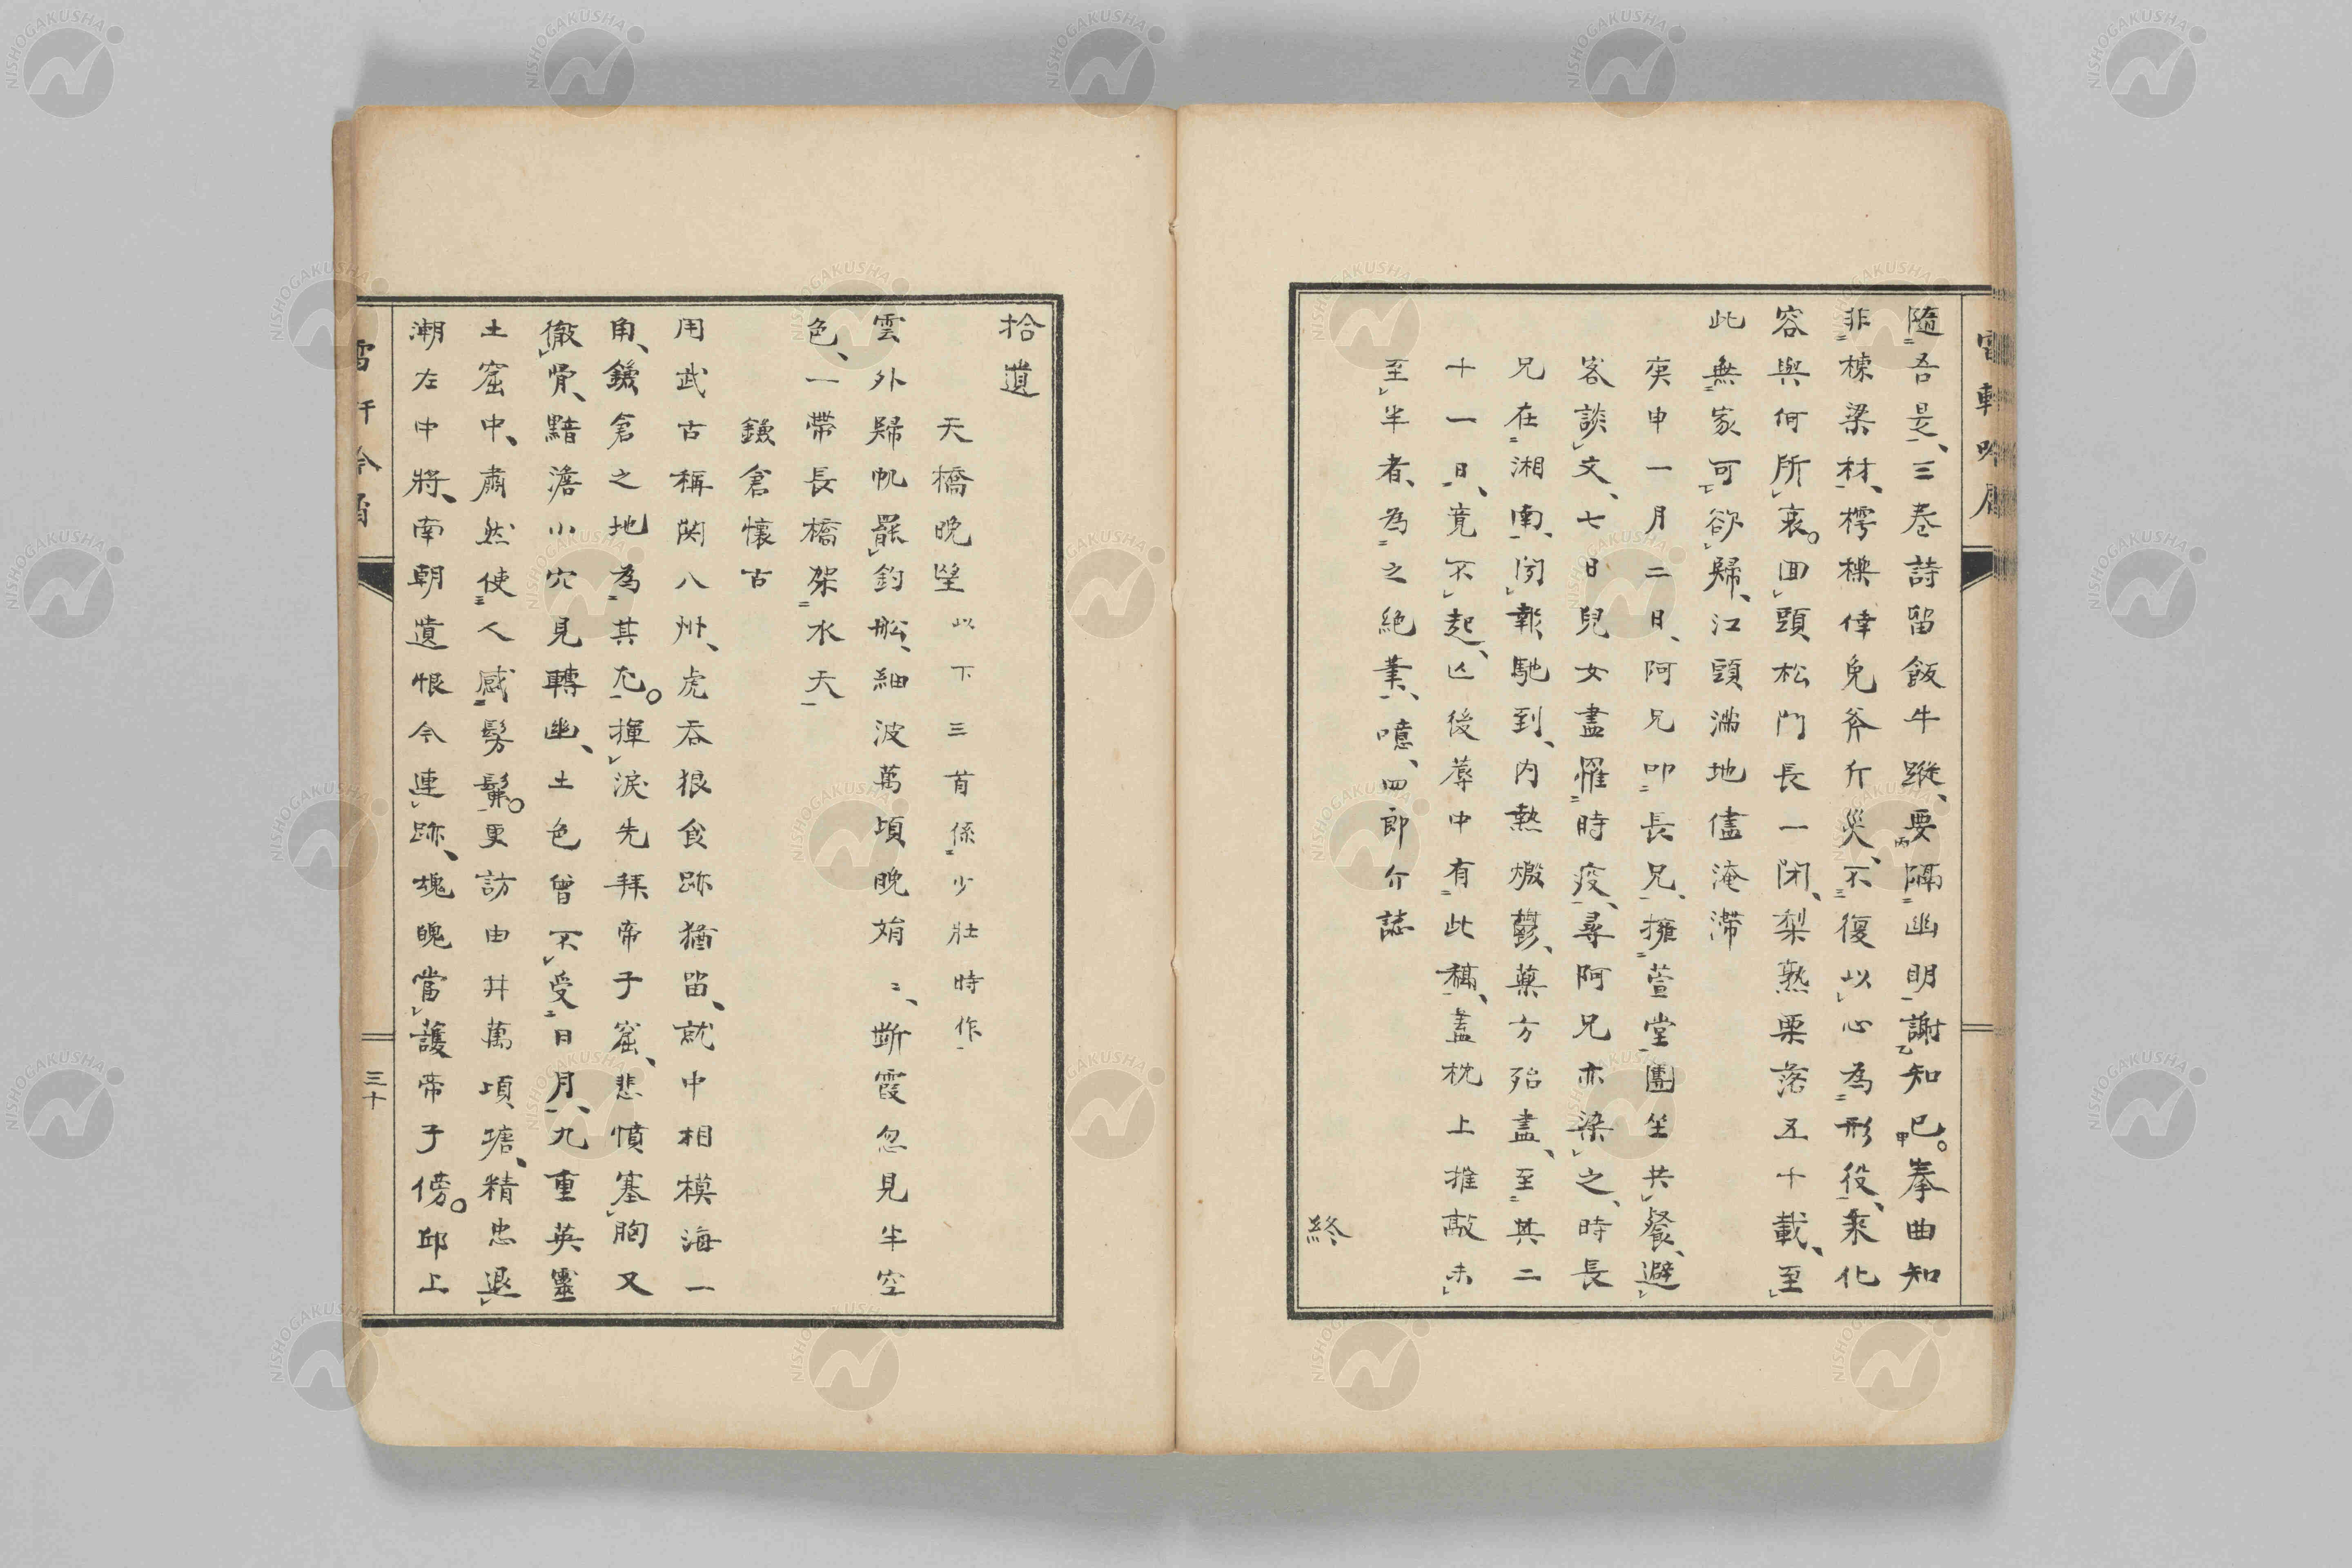 隨吾是、三卷詩留飯牛蹤、要隔幽明謝知已。拳曲知
非棟梁材、樗櫟倖免斧斤災、不復以心為形役、乘化
容與何所哀。囬頭松門長一閉、梨熟栗落五十載、至
此無家可欲歸、江頭滿地儘淹滯
庚申一月二日、阿兄叩長兄、擁萱堂團坐共餐、避
客談文、七日兒女盡罹時疫、尋阿兄亦染之、時長
兄在湘南、閲報馳到、内熱燉鬱、藥方殆盡、至其二
十一日、竟不起、亡後蓐中有此稿、蓋枕上推敲未
至半者、為之絶筆、噫、四郎介誌
終
拾遺
天橋晩望以下三首係少壯時作
雲外歸帆罷釣舩、細波萬頃晩娟〻、斷霞忽見半空
色、一帶長橋架水天
鎌倉懷古
用武古稱関八州、虎吞狼食跡猶留、就中相模海一
角、鎌倉之地為其尤。揮淚先拜帝子窟、悲憤塞胸又
徹骨、黯澹小穴見轉幽、土色曾不受日月、九重英靈
土窟中、肅然使人感髣髴。更訪由井萬項塘、精忠退
潮左中將、南朝遺恨今連跡、魂魄當護帝子傍。邱上
三十
NISHOGAKUSHA